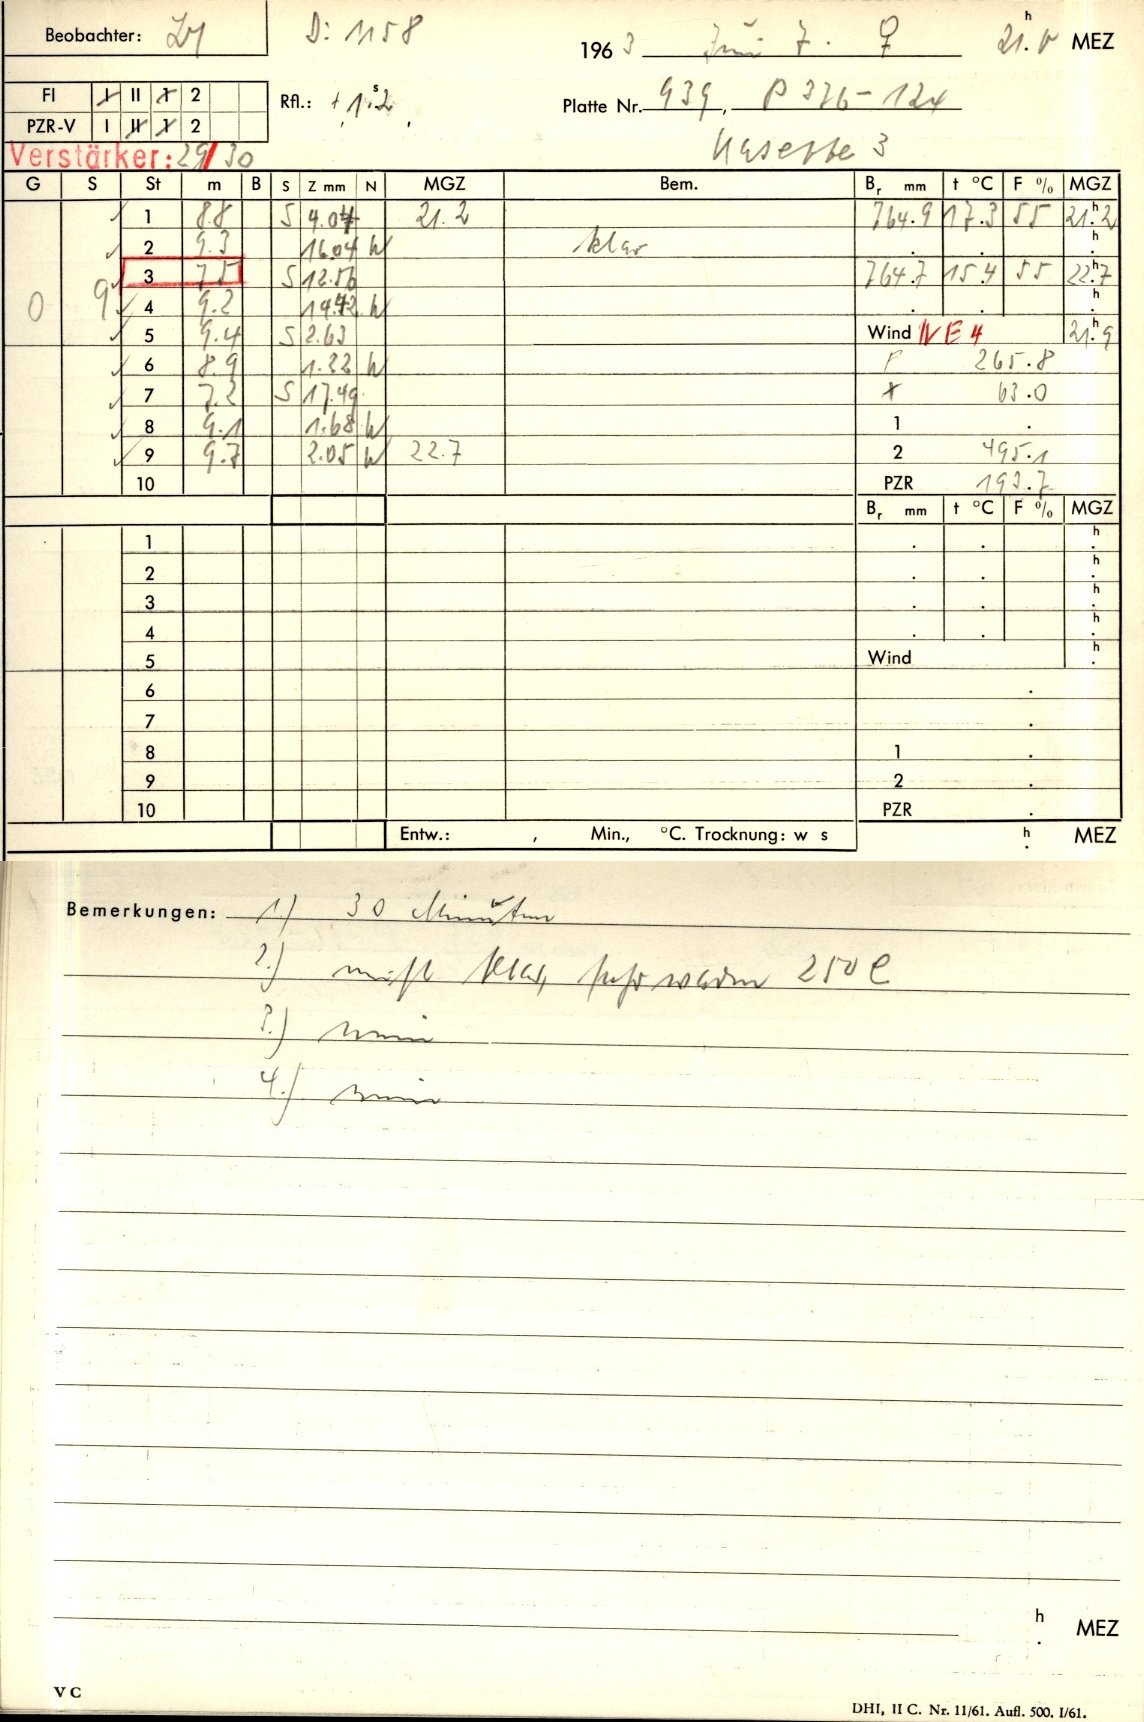 Beobachter: D: 1158 1963 Juni 7. ♀ 21.0 h MEZ
FI I II 1 2 Rfl.: +1.2 s Platte Nr. 939, P 376-124
PZR-V I II 1 2
Verstärker: 29/30 Kasette 3
G S St m B S Z mm N MGZ Bem. Br mm t °C F % MGZ
1 8.8 S 4.04 21.2 764.9 17.3 55 21.2 h
2 9.3 16.04 W klar . . h
3 7.5 S 12.56 764.7 15.4 55 22.7 h
0 9 4 9.2 14.42 W . . h
5 9.4 S 2.63 Wind NE 4 21.9 h
6 8.9 1.22 W F 265.8
7 7.2 S 17.49 X 63.0
8 9.1 1.68 W 1 .
9 9.7 2.05 W 22.7 2 495.1
10 PZR 193.7
Br mm t °C F % MGZ
1 . . h
2 . . h
3 . . h
4 . . h
5 Wind h
6 .
7 .
8 1 .
9 2 .
10 PZR .
Entw.: , Min., °C. Trocknung: w s h MEZ
Bemerkungen: 1.) 30 Minuten
2.) nicht klar, sehr warm 250 C
3.) nein
4.) nein
h MEZ
V C
DHI, II C. Nr. 11/61. Aufl. 500. I/61.